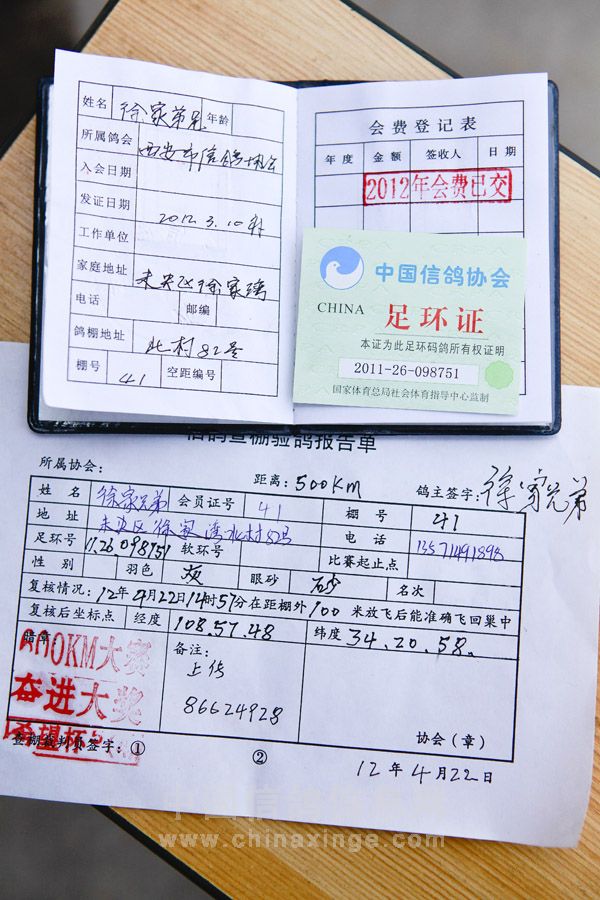 姓名 徐家弟兄 年龄
所属鸽会 西安市信鸽协会
入会日期
发证日期 2012.3.10
工作单位
家庭地址 未央区徐家湾
电话 邮编
鸽棚地址 北村82号
棚号 41 空距编号
会费登记表
年度 金额 签收人 日期
2012年会费已交
中国信鸽协会
CHINA 足环证
本证为此足环码鸽所有权证明
2011-26-098751
国家体育总局社会体育指导中心监制
信鸽查棚验鸽报告单
所属协会: 距离: 500KM 鸽主签字: 徐家兄弟
姓名 徐家兄弟 会员证号 41 棚号 41
地址 未央区徐家湾北村82号 电话 13571491898
足环号 11.26 098751 软环号 比赛起止点
性别 羽色 灰 眼砂 砂 名次
复核情况: 12年4月22日14时57分在距棚外100米放飞后能准确飞回巢中
复核后坐标点 经度 108.57.48 纬度 34.20.58.
备注:
上传
86624928
大赛
奋进大奖
望杯
协会(章)
查棚裁判员签字: ① ②
12年4月22日
www.chinaxinge.com